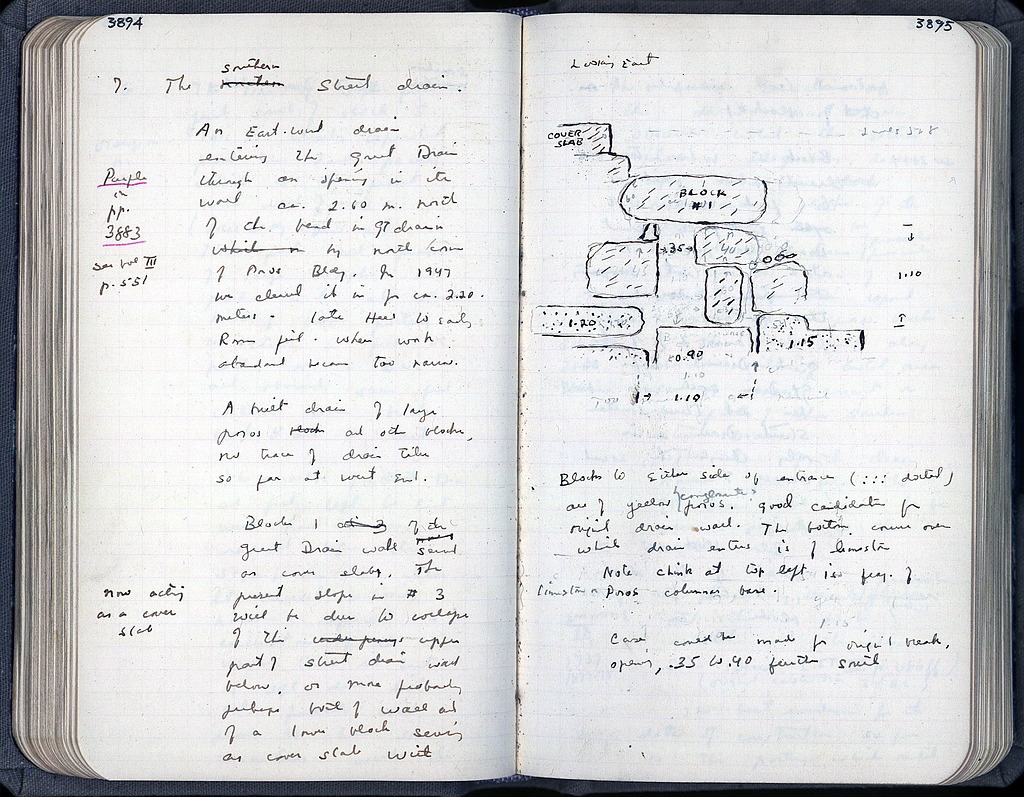 3894
7. The southern Street drain.
An East-West drain
entering the great Drain
through an opening in its
wall ca. 2.60 m. north
of the bend in gt drain
by north
of Poros Bldg. In 1947
we cleared it in for ca. 2.20
meters. late Hell to early
Rom fill. when work
abandoned too narrow.
A built drain of large
poros blocks and other blocks,
no trace of drain tiles
so far at west end.
Blocks 1 of the
great Drain wall served
as cover slabs. The
present slope in # 3
will be due to collapse
of the upper
part of street drain wall
below, or more probably
perhaps both of wall and
of a lower block serving
as cover slab
Purple
in
pp.
3883
see vol III
p. 551
now acting
as a cover
slab
3895
Looking East
COVER
SLAB
BLOCK
#1
.35
40
0.60
1.10
1.20
1.15
0.90
1.10
1.10
Blocks to either side of entrance (::: dotted)
are of yellow conglomerate poros. good candidates for
original drain wall. The bottom course over
which drain enters is of limestone
Note chink at top left is frag. of
limestone Poros column base.
1.15
Case could be made for original break,
opening, .35 to .40 further south